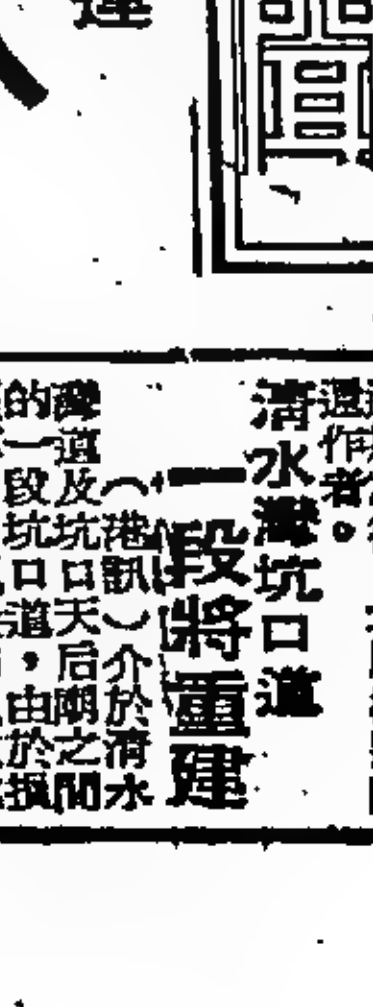 還作者。
清水灣坑口道
一段將重建
（港訊）介於清水
灣道及坑口天后廟之間
的一段坑口道，由於損